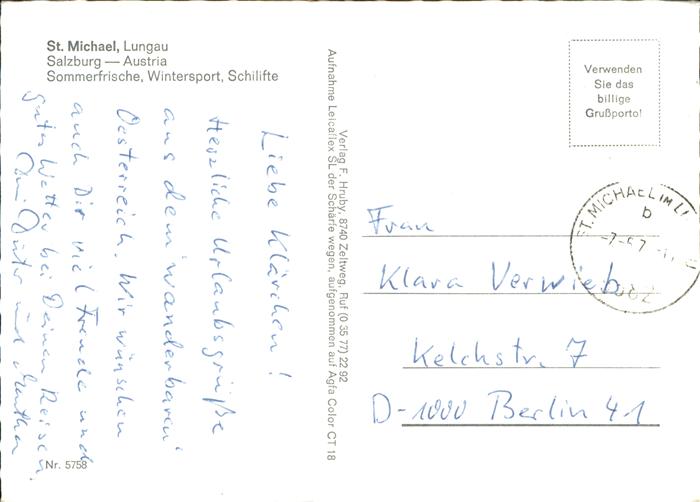 St. Michael, Lungau
Salzburg — Austria
Sommerfrische, Wintersport, Schilifte
Liebe Klärchen!
Herzliche Urlaubsgrüße
aus dem wunderbaren
Oesterreich. Wir wünschen
auch Dir viel Freude und
gutes Wetter bei Deinen Reisen.
und
Nr. 5758
Verlag F. Hruby, 8740 Zeltweg, Ruf (0 35 77) 22 92
Aufnahme Leicaflex SL der Schärfe wegen, aufgenommen auf Agfa Color CT 18
Verwenden
Sie das
billige
Grußporto!
ST. MICHAEL IM L
b
Frau
Klara Verwieb
Kelchstr. 7
D-1000 Berlin 41